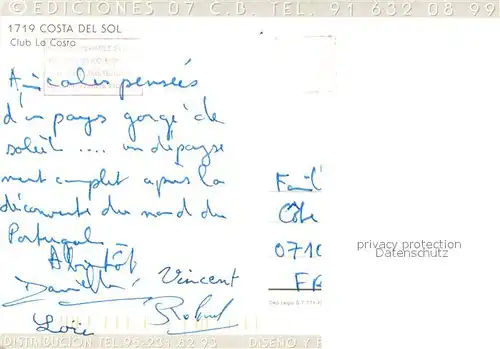 ©EDICIONES 07 C.B. TEL. 91 632 08 99
1719 COSTA DEL SOL
Club La Costa
Amicales pensées
d'un pays gorgé de
soleil .... un dépayse
ment complet après la
découverte du nord du
Portugal
A bientôt
Danielle Vincent
Loïc Roland
Famil
Côte
0710
FR
privacy protection
Datenschutz
DISTRIBUCIÓN TEL. 95-234 82 93 DISEÑO Y F